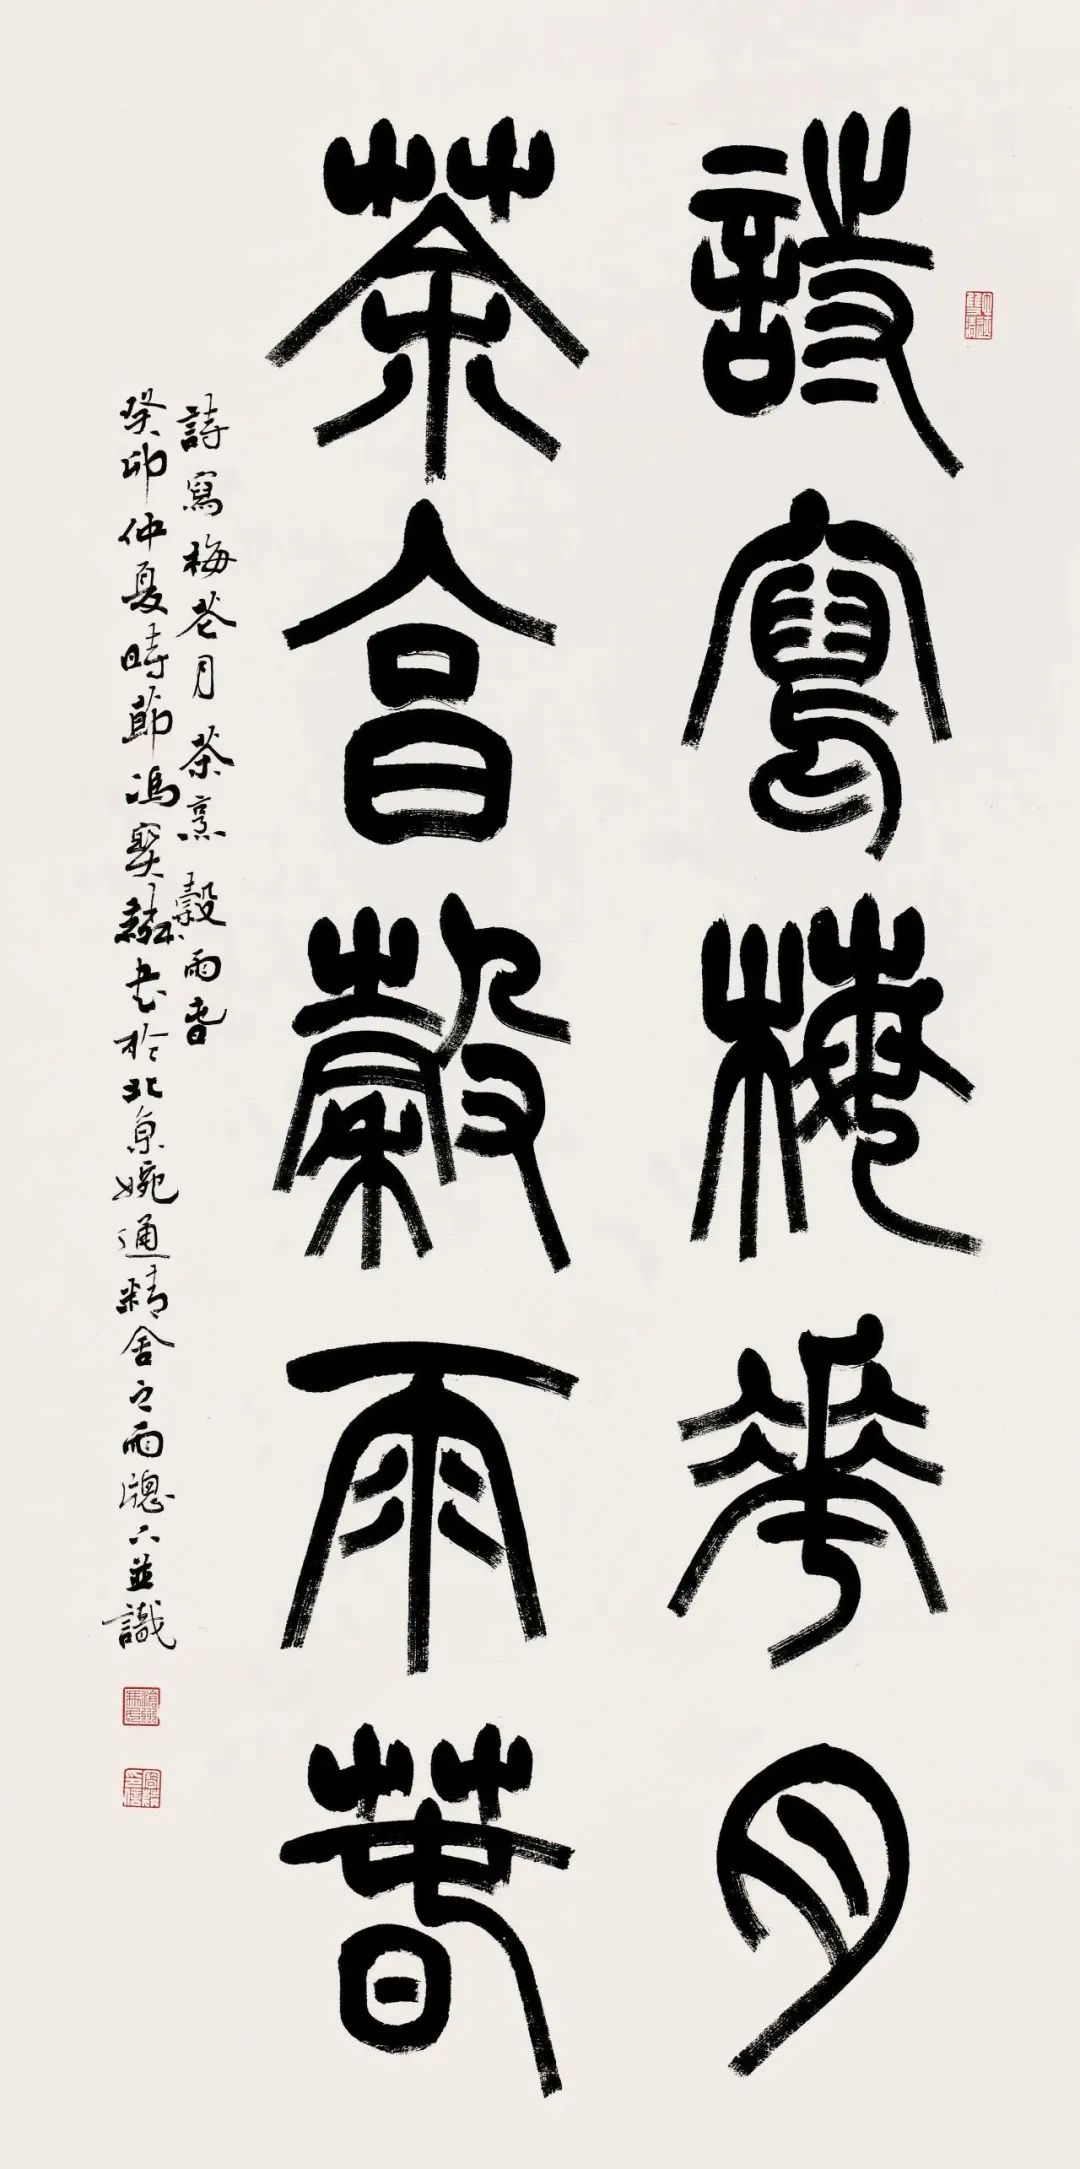 詩寫梅華月
茶亯穀雨萅
詩寫梅花月茶烹穀雨春
癸卯仲夏時節馮寶麟書於北京婉通精舍之雨窗下並識